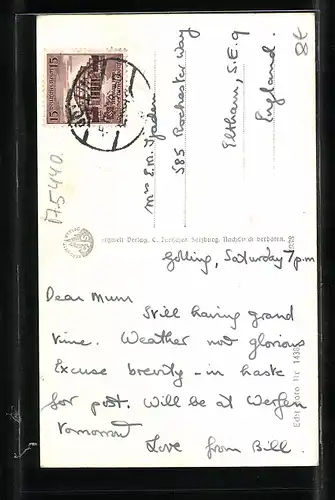 Golling, Saturday 7 p.m
Dear Mum
Still having grand
time. Weather not glorious
Excuse brevity - in haste
for post. Will be at Werfen
tomorrow
Love from Bill.
Mrs E.M.
585 Rochester Way
Eltham, S.E.9
England.
84
A5440
15 15
Verlag, C. Jurischek, Salzburg. Nachdruck verboten.
Echt Foto Nr. 1438